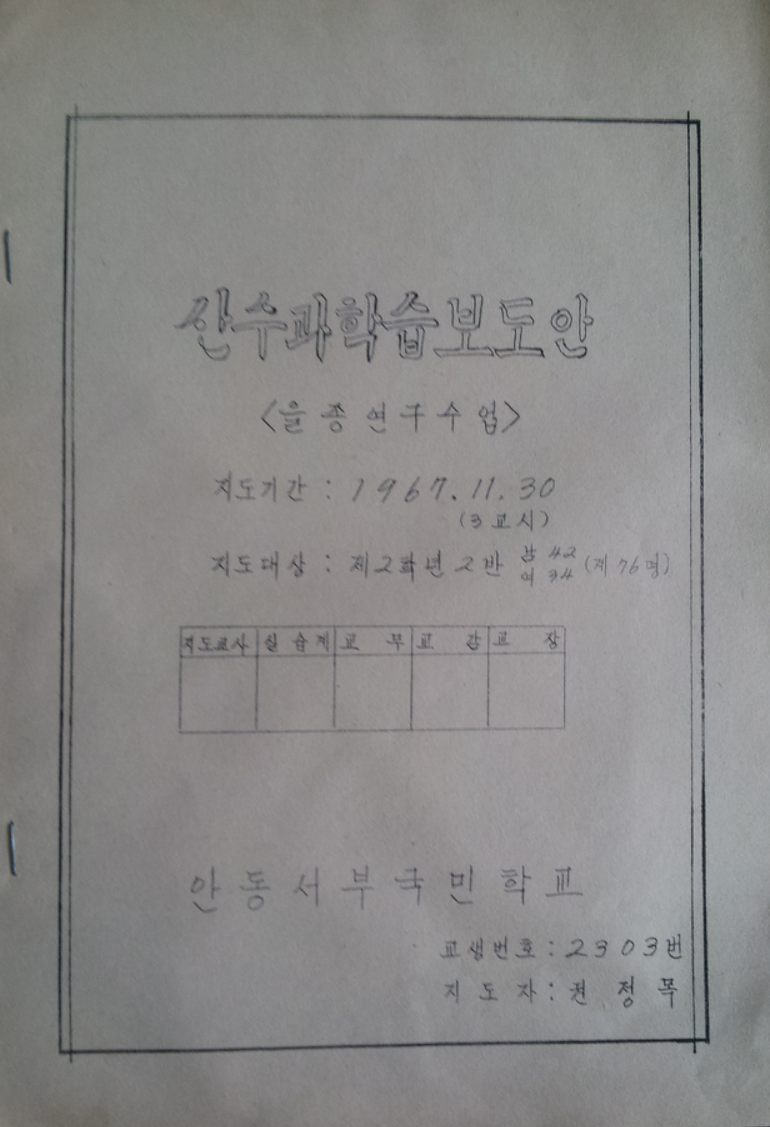 산수과학습보도안
<을종연구수업>
지도기간 : 1967. 11. 30
(3교시)
지도대상 : 제2학년 2반 남 42 여 34 (계 76명)
지도교사 실습계 교무 교감 교장
안동서부국민학교
교생번호 : 2303번
지도자 : 권정목